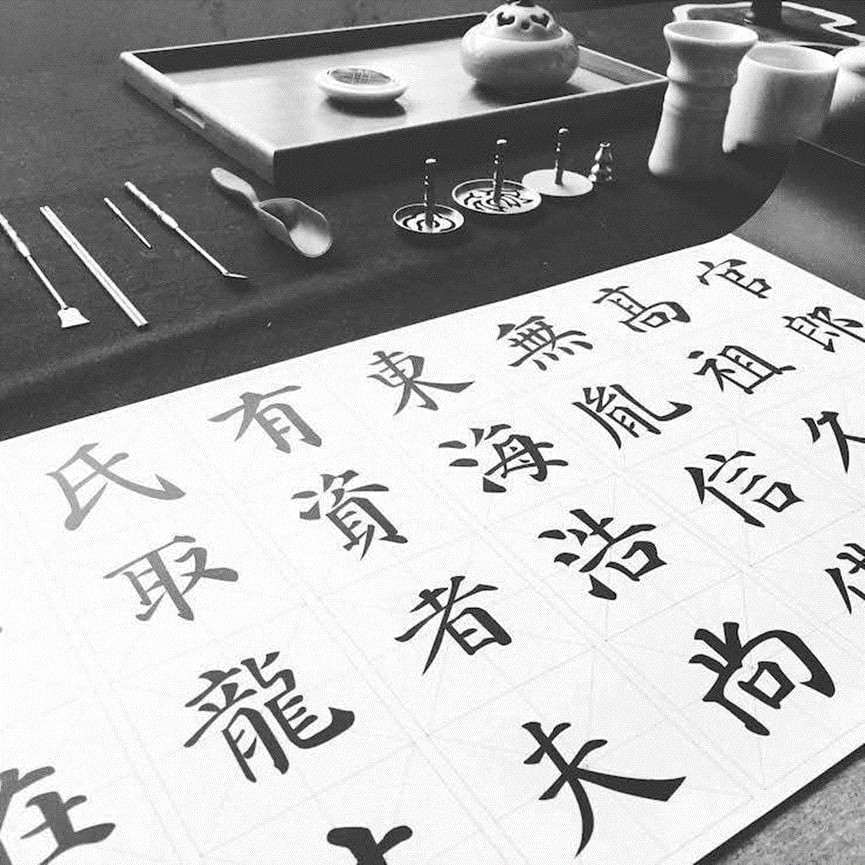 官郎
高祖久
無胤信
東海浩尚
有資者夫
氏取龍
在